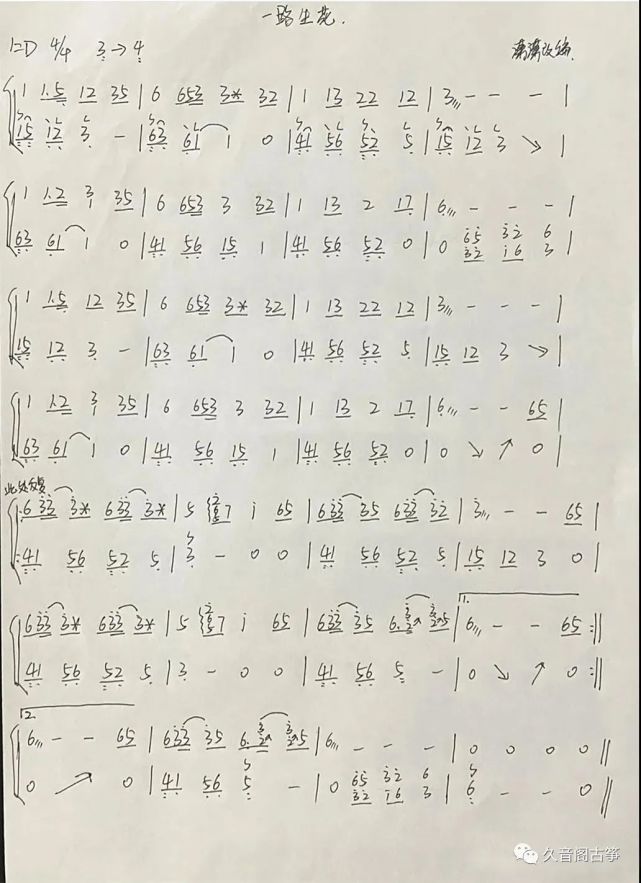 一路生花.
1=D 4/4 3→4 漓漓改编
1 1·5 12 35 | 6 653 3* 32 | 1 13 22 12 | 3 - - - |
15 12 3 - | 63 61 1 0 | 41 56 52 5 | 15 12 3 ↘ |
1 1·2 3 35 | 6 653 3 32 | 1 13 2 17 | 6 - - - |
63 61 1 0 | 41 56 15 1 | 41 56 52 0 | 0 65 32 6
32 16 3 |
1 1·5 12 35 | 6 653 3* 32 | 1 13 22 12 | 3 - - - |
15 12 3 - | 63 61 1 0 | 41 56 52 5 | 15 12 3 ↘ |
1 1·2 3 35 | 6 653 3 32 | 1 13 2 17 | 6 - - 65 |
63 61 1 0 | 41 56 15 1 | 41 56 52 0 | 0 ↘ ↗ 0 |
此处反复
6 33 3* 633 3* | 5 i 65 | 633 35 633 32 | 3 - - 65 |
41 56 52 5 | 3 - 0 0 | 41 56 52 5 | 15 12 3 0 |
1.
633 3* 633 3* | 5 i 65 | 633 35 6· 5 | 6 - - 65 :||
41 56 52 5 | 3 - 0 0 | 41 56 5 - | 0 ↘ ↗ 0 :||
2.
6 - - 65 | 633 35 6· 5 | 6 - - - | 0 0 0 0 ||
0 ↗ 0 | 41 56 5 - | 0 65 32 6 | 6 - - 0 ||
32 16 3
久音阁古筝